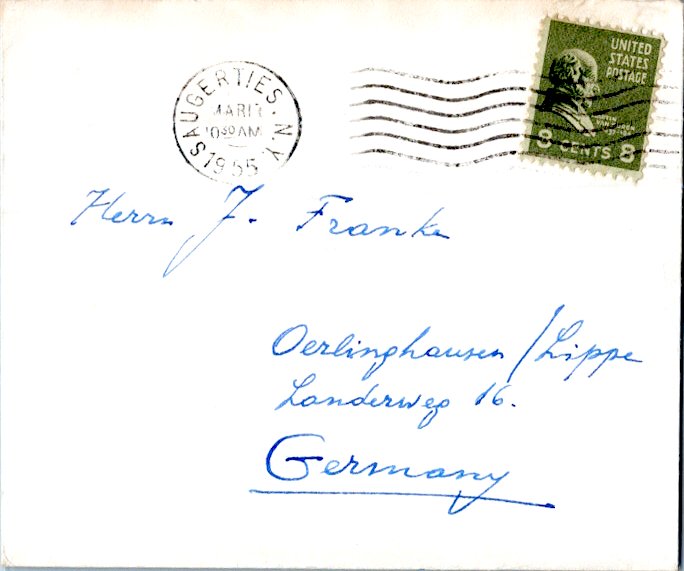 SAUGERTIES, N.Y.
MAR 1
10 30 AM
1955
UNITED
STATES
POSTAGE
8 CENTS 8
Herrn J. Franke
Oerlinghausen / Lippe
Landerweg 16.
Germany